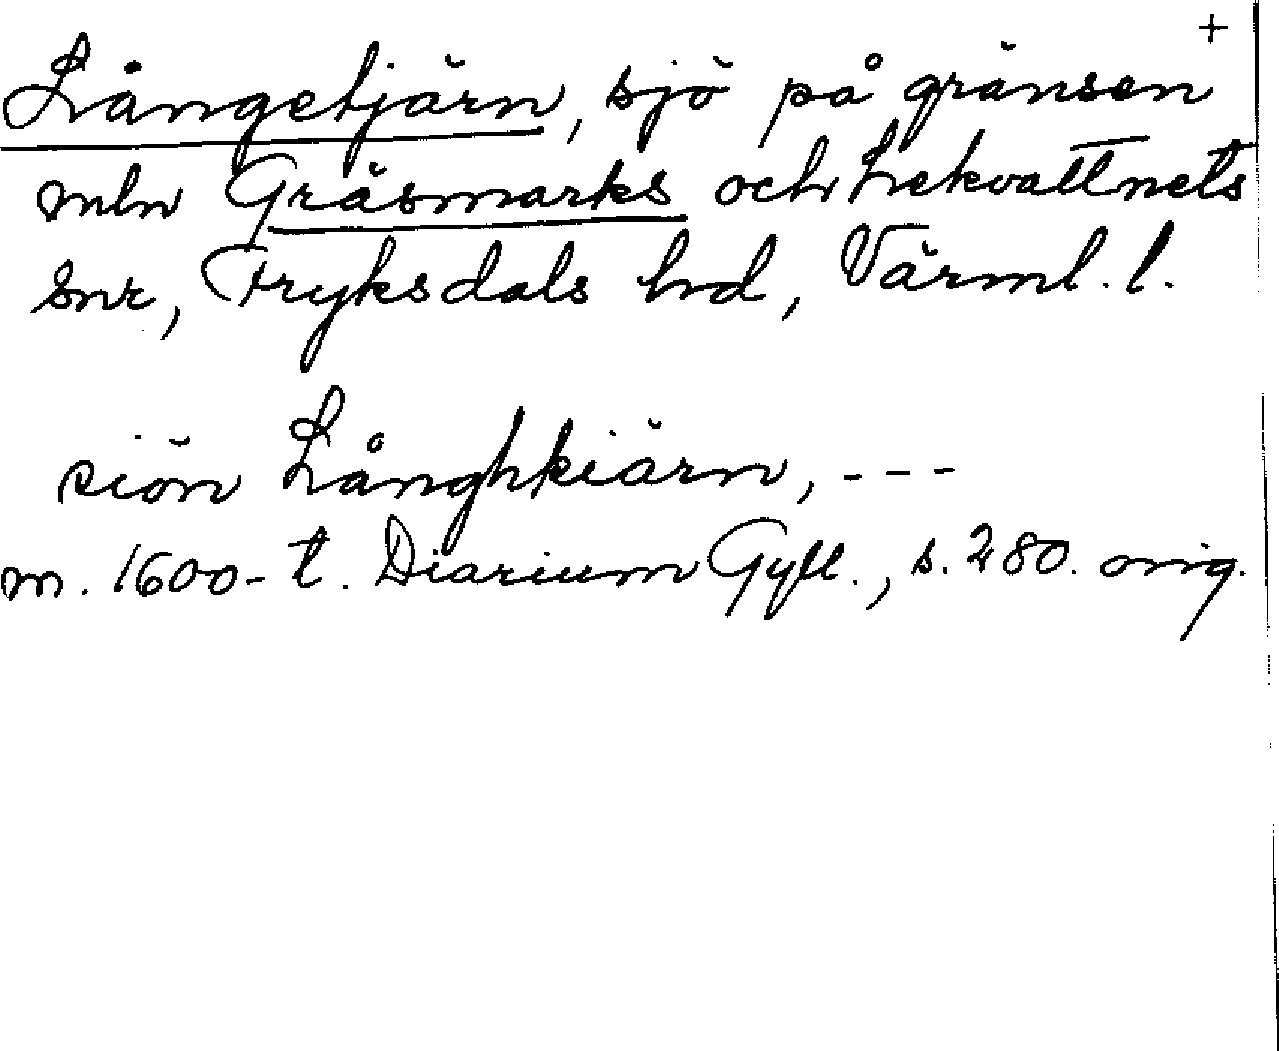 +
Långetjärn, sjö på gränsen
mln Gräsmarks och Lekvattnets
snr, Fryksdals hd, Värml. l.
siön Långhkiärn, - - -
m. 1600-t. Diarium Gyll., s. 280. orig.